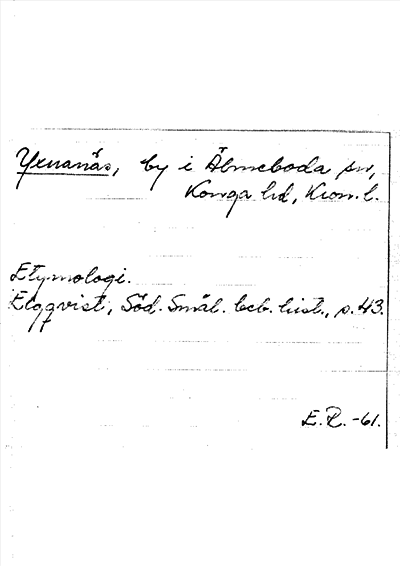 Yxnanäs, by i Älmeboda sn,
Konga hd, Kron. l.
Etymologi.
Elgqvist, Söd. Smål. beb. hist., s. 43.
E.R. -61.